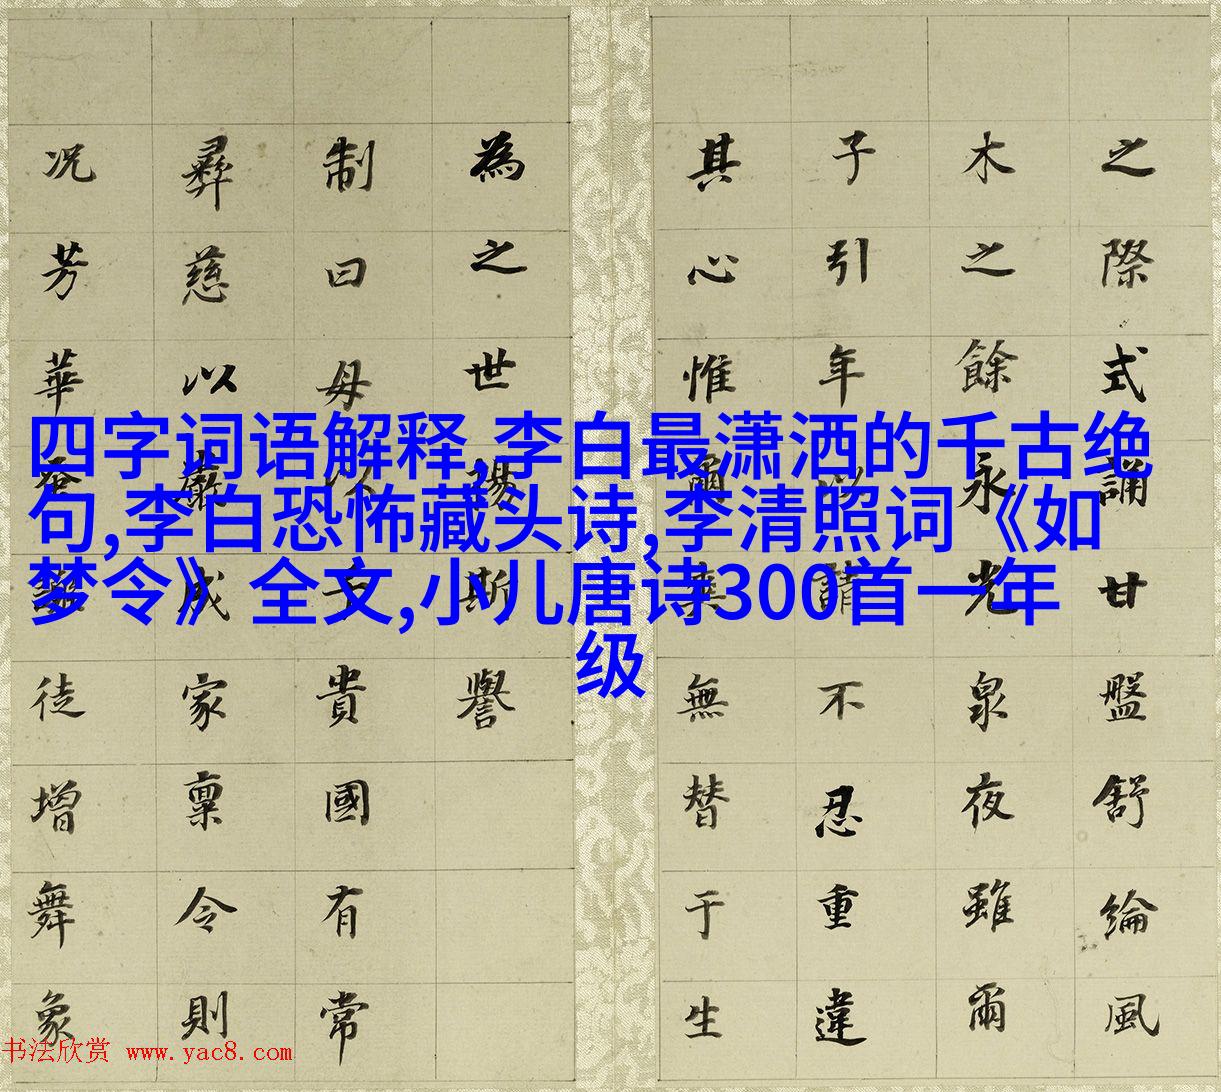 四字词语解释,李白最潇洒的千古绝
句,李白恐怖藏头诗,李清照词《如
梦令》全文,小儿唐诗300首一年
级
之際式誦甘盤舒綸風
木之餘永光泉夜雖爾
子引年以請不忍重違
其心惟爾無替于生
為之世錫斯譽
制曰母以子貴國有常
彝慈以嚴成家稟令則
况芳華徒增舞象
书法欣赏 www.yac8.com